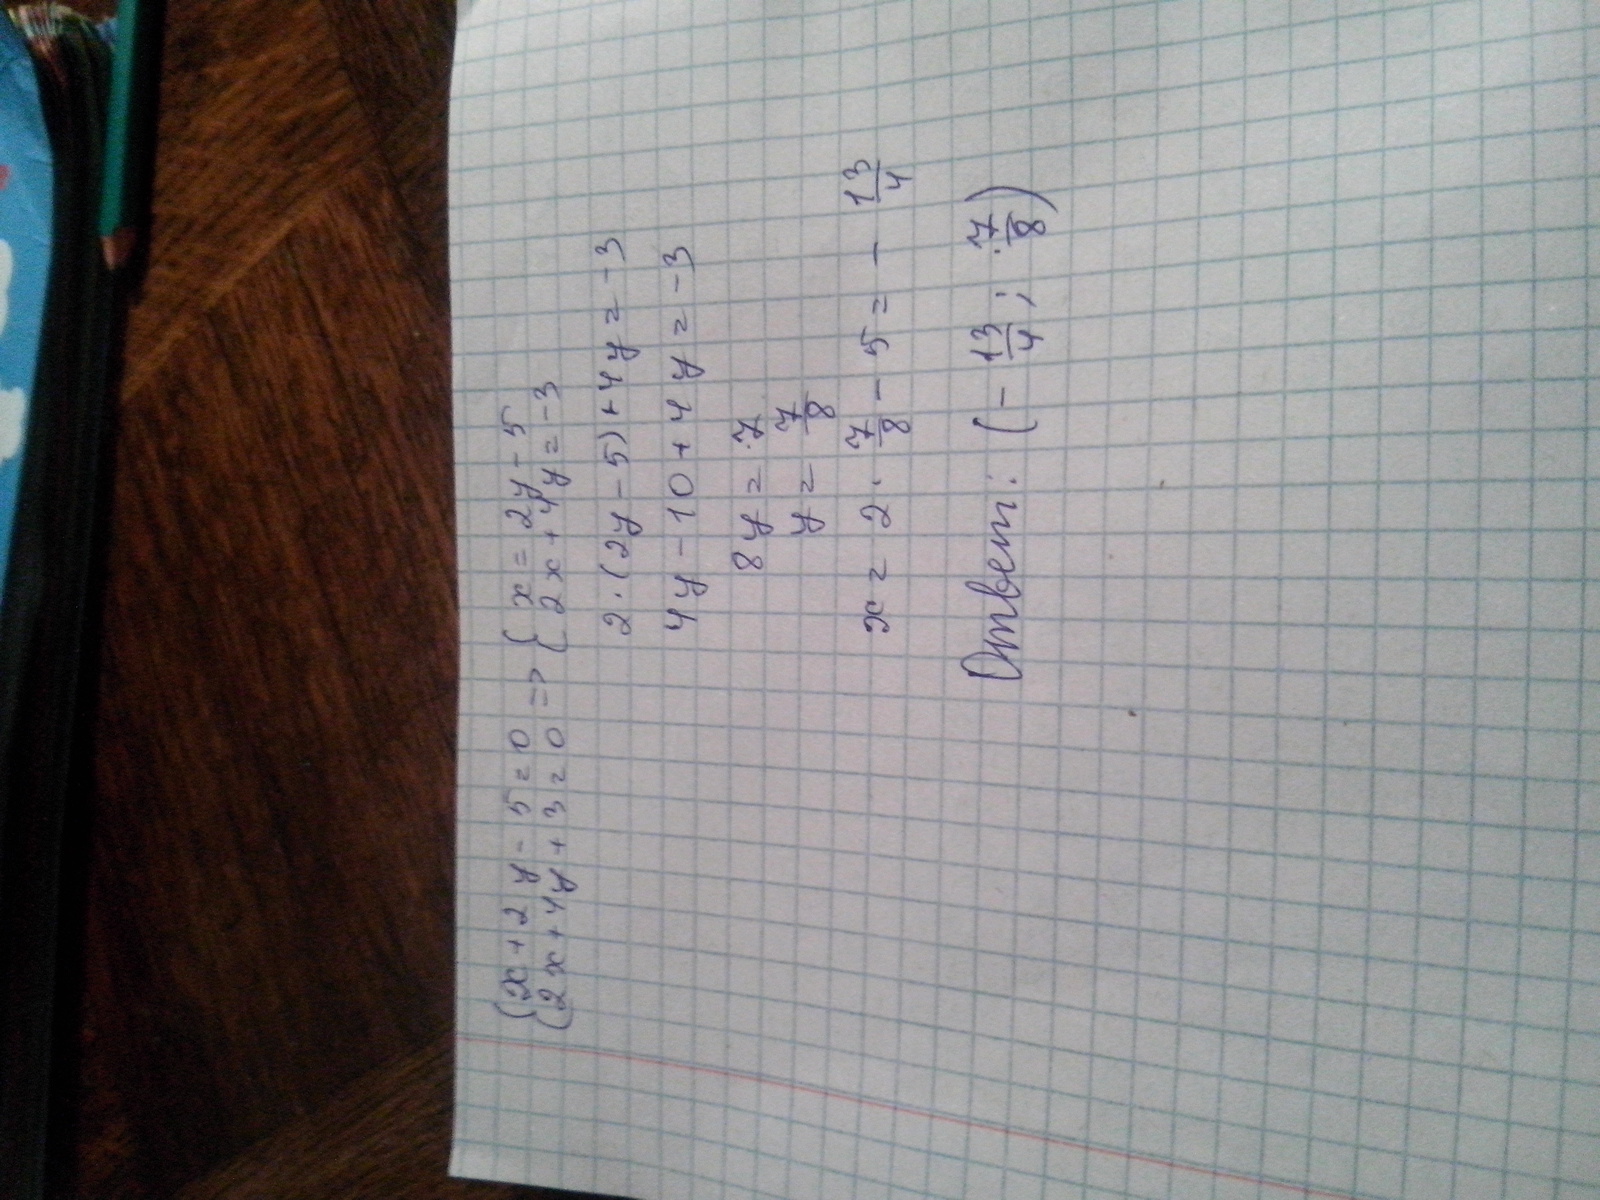 {x + 2y - 5 = 0 => {x = 2y - 5
{2x + 4y + 3 = 0 {2x + 4y = -3
2·(2y - 5) + 4y = -3
4y - 10 + 4y = -3
8y = 7
y = 7/8
x = 2 · 7/8 - 5 = - 13/4
Ответ: (- 13/4 ; 7/8)